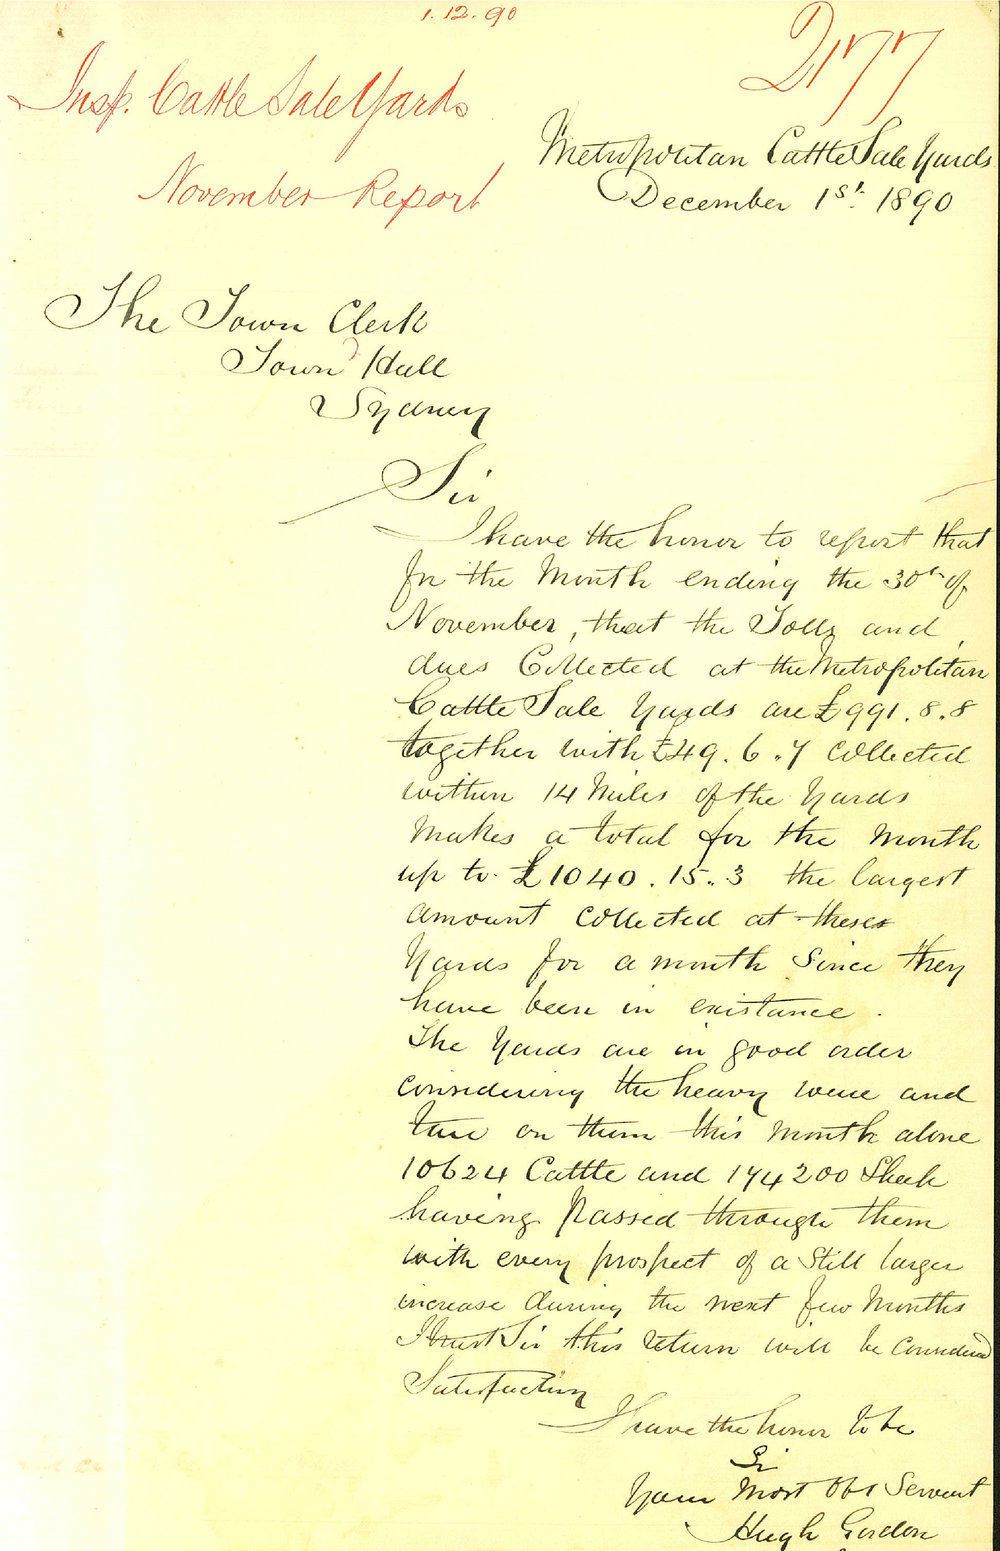 1.12.90
277
Insp. Cattle Sale Yards
November Report
Metropolitan Cattle Sale Yards
December 1st. 1890
The Town Clerk
Town Hall
Sydney
Sir
I have the honor to report that
for the Month ending the 30th of
November, that the Tolls and
dues Collected at the Metropolitan
Cattle Sale Yards are £991.8.8
together with £49.6.7 collected
within 14 Miles of the Yards
makes a total for the month
up to £1040.15.3 the largest
amount collected at these
Yards for a month since they
have been in existance.
The Yards are in good order
considering the heavy ware and
tare on them this month alone
10624 Cattle and 174200 Sheep
having passed through them
with every prospect of a still larger
increase during the next few Months
I trust Sir this return will be Considered
Satisfactory
I have the honor to be
Sir
Your Most Obt Servant
Hugh Gordon